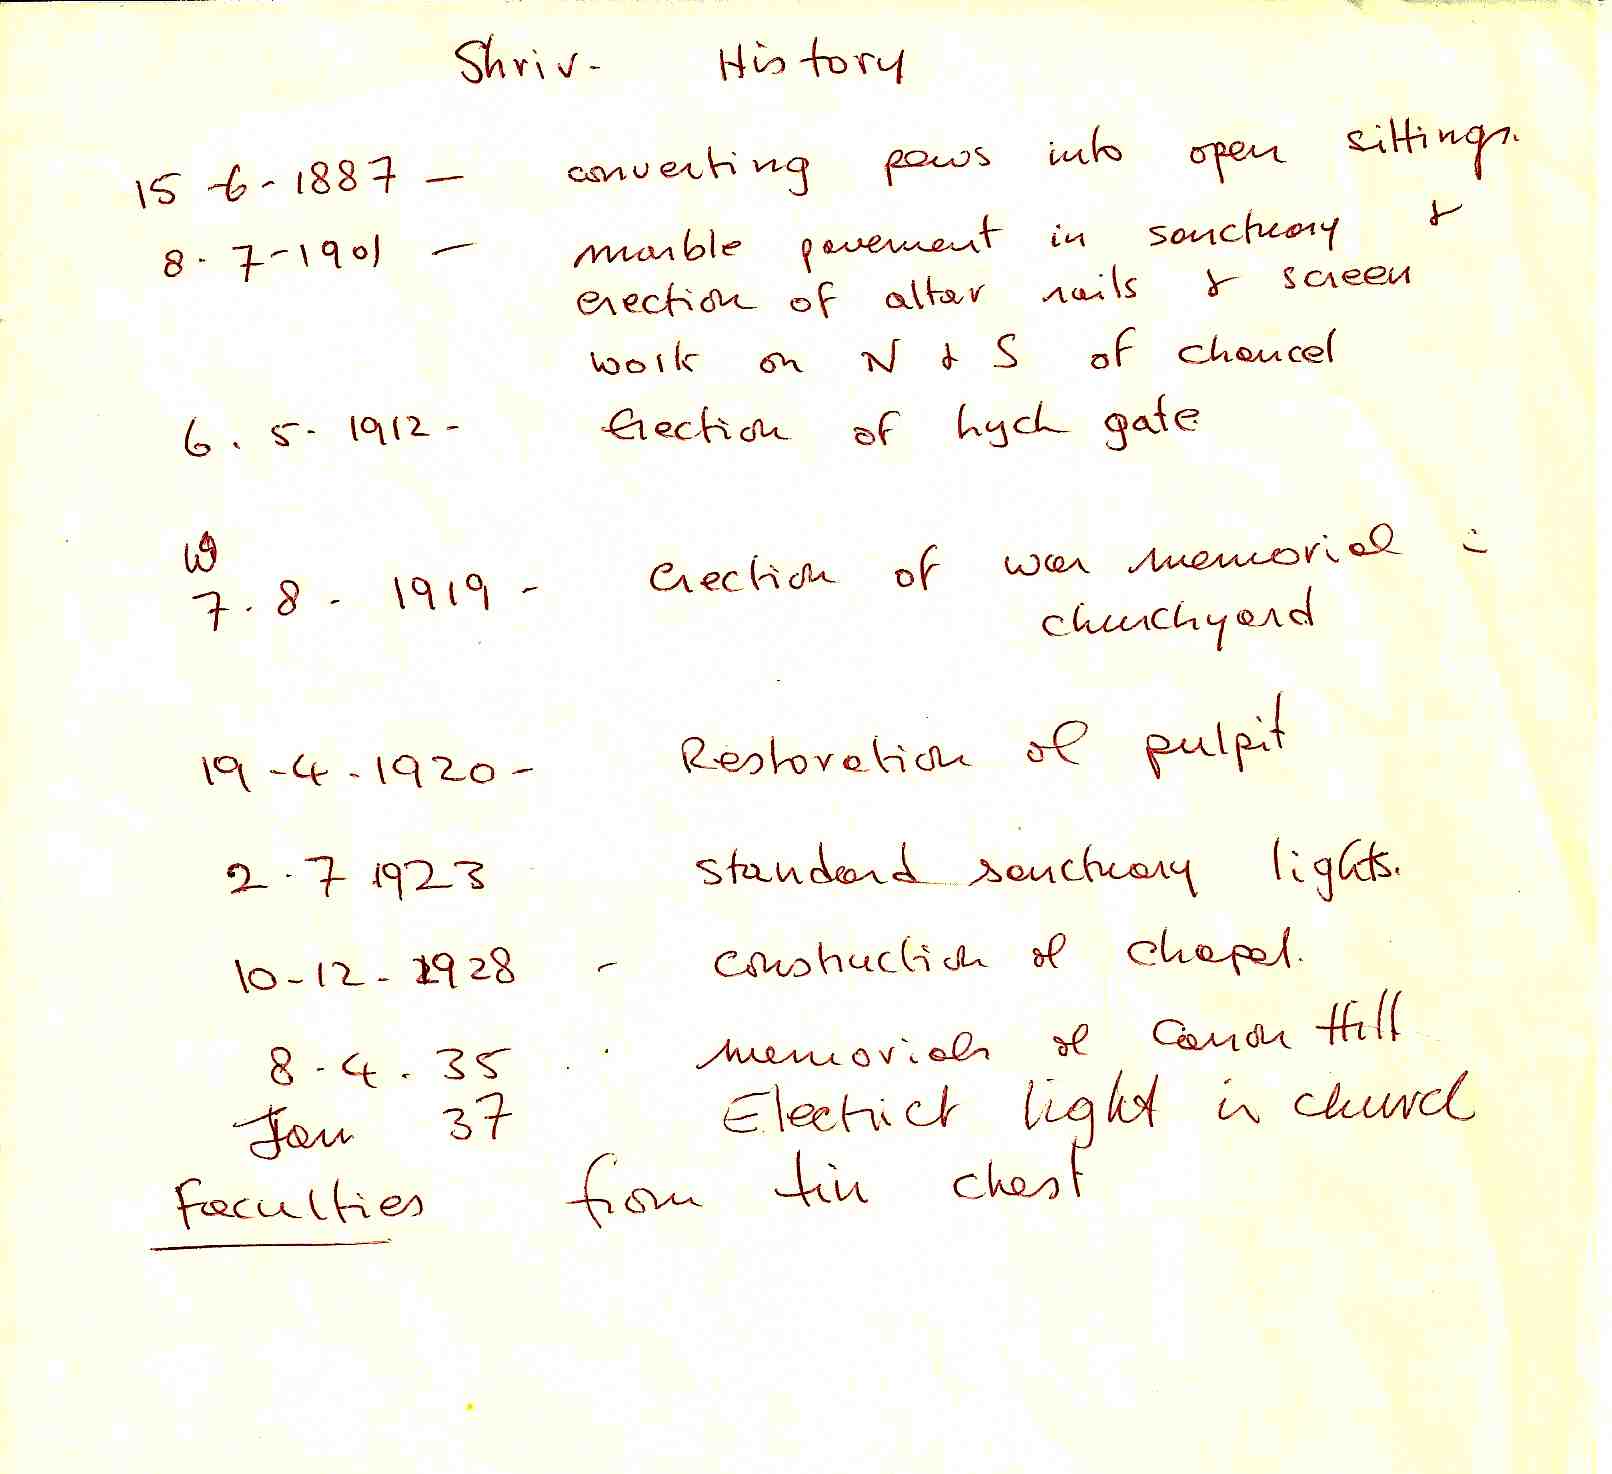 Shriv- History
15-6-1887 - converting pews into open sittings.
8-7-1901 - marble pavement in sanctuary &
erection of altar rails & screen
work on N & S of chancel
6.5-1912- Erection of lych gate
7.8-1919- erection of war memorial in
churchyard
19-4-1920- Restoration of pulpit
2.7 1923 standard sanctuary lights.
10-12-1928 - construction of chapel.
8-4.35 memorials of Canon Hill
Jan 37 Electrict light in church
Faculties from tin chest